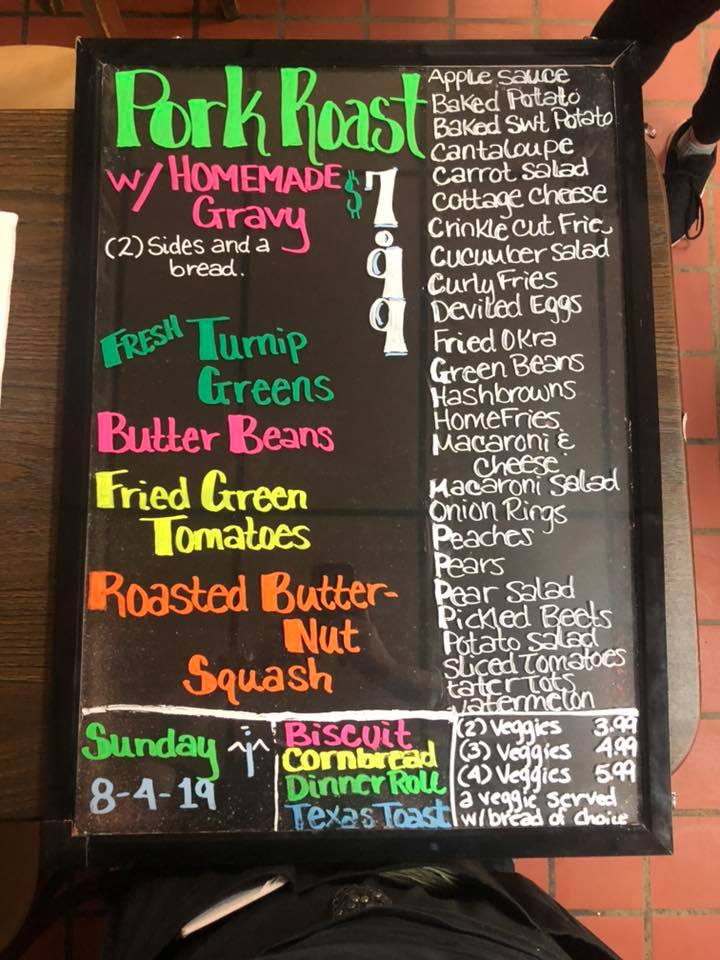 Pork Roast
w/ HOMEMADE
Gravy
$7.99
(2) Sides and a
bread.
FRESH Turnip
Greens
Butter Beans
Fried Green
Tomatoes
Roasted Butter-
Nut
Squash
Apple sauce
Baked Potato
Baked Swt Potato
Cantaloupe
Carrot Salad
Cottage Cheese
Crinkle cut Frie
Cucumber Salad
Curly Fries
Deviled Eggs
Fried Okra
Green Beans
Hashbrowns
Home Fries
Macaroni &
Cheese
Macaroni Salad
Onion Rings
Peaches
Pears
Pear Salad
Pickled Beets
Potato Salad
Sliced Tomatoes
tater Tots
Watermelon
Sunday
8-4-19
Biscuit
Cornbread
Dinner Roll
Texas Toast
(2) Veggies 3.99
(3) Veggies 4.99
(4) Veggies 5.99
a veggie served
w/bread of choice